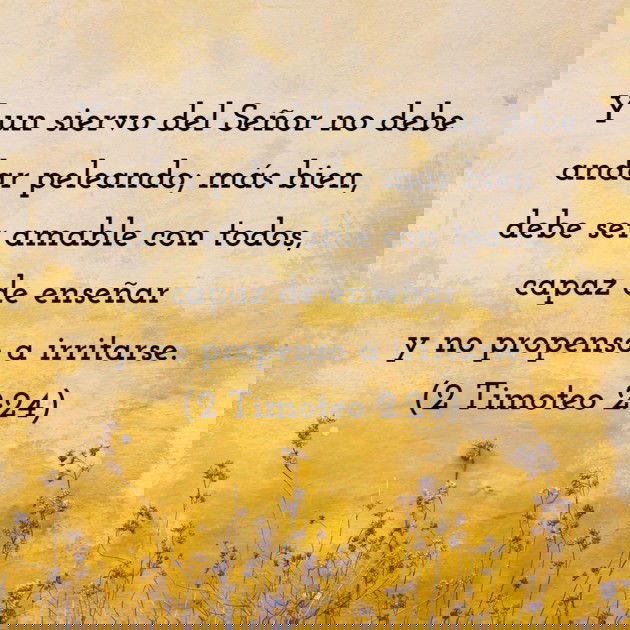 Y un siervo del Señor no debe
andar peleando; más bien,
debe ser amable con todos,
capaz de enseñar
y no propenso a irritarse.
(2 Timoteo 2:24)